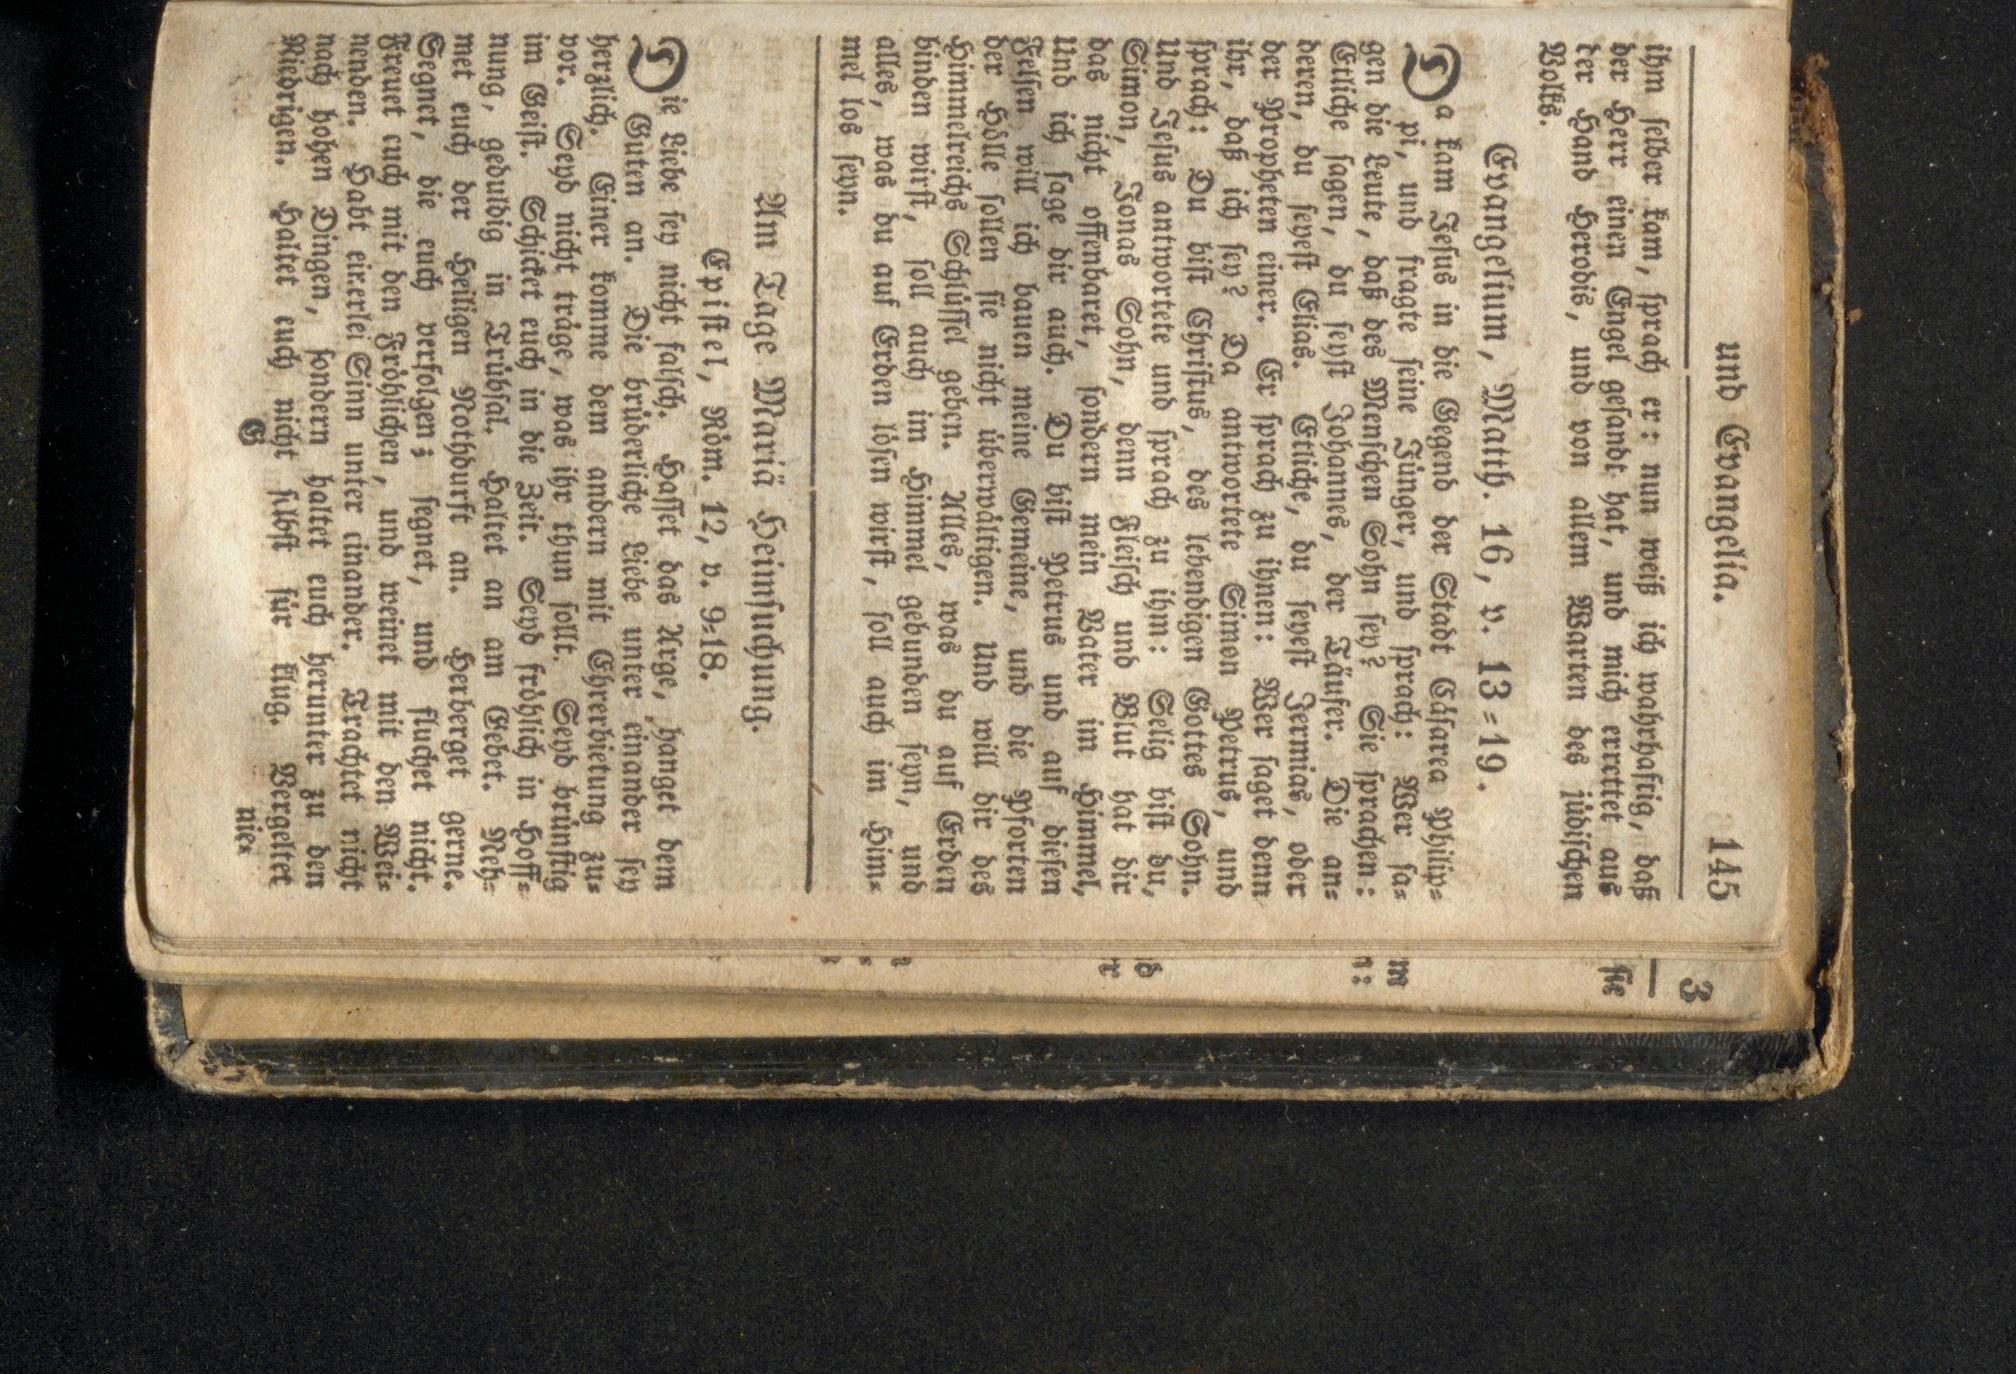 und Evangelia. 145
ihm ſelber kam, ſprach er: nun weiß ich wahrhaftig, daß
der Herr einen Engel geſandt hat, und mich errettet aus
der Hand Herodis, und von allem Warten des jüdiſchen
Volks.
Evangelium, Matth. 16, v. 13=19.
Da kam Jeſus in die Gegend der Stadt Cäſarea Philip=
pi, und fragte ſeine Jünger, und ſprach: Wer ſa=
gen die Leute, daß des Menſchen Sohn ſey? Sie ſprachen:
Etliche ſagen, du ſeyſt Johannes, der Täufer. Die an=
deren, du ſeyeſt Elias. Etliche, du ſeyeſt Jermias, oder
der Propheten einer. Er ſprach zu ihnen: Wer ſaget denn
ihr, daß ich ſey? Da antwortete Simon Petrus, und
ſprach: Du biſt Chriſtus, des lebendigen Gottes Sohn.
Und Jeſus antwortete und ſprach zu ihm: Selig biſt du,
Simon, Jonas Sohn, denn Fleiſch und Blut hat dir
das nicht offenbaret, ſondern mein Vater im Himmel.
Und ich ſage dir auch. Du biſt Petrus und auf dieſen
Felſen will ich bauen meine Gemeine, und die Pforten
der Hölle ſollen ſie nicht überwältigen. Und will dir des
Himmelreichs Schlüſſel geben. Alles, was du auf Erden
binden wirſt, ſoll auch im Himmel gebunden ſeyn, und
alles, was du auf Erden löſen wirſt, ſoll auch im Him=
mel los ſeyn.
Am Tage Mariä Heimſuchung.
Epiſtel, Röm. 12, v. 9=18.
Die Liebe ſey nicht falſch. Haſſet das Arge, hanget dem
Guten an. Die brüderliche Liebe unter einander ſey
herzlich. Einer komme dem andern mit Ehrerbietung zu=
vor. Seyd nicht träge, was ihr thun ſollt. Seyd brünſtig
im Geiſt. Schicket euch in die Zeit. Seyd fröhlich in Hoff=
nung, geduldig in Trübſal. Haltet an am Gebet. Neh=
met euch der Heiligen Nothdurft an. Herberget gerne.
Segnet, die euch verfolgen; ſegnet, und fluchet nicht.
Freuet euch mit den Fröhlichen, und weinet mit den Wei=
nenden. Habt einerlei Sinn unter einander. Trachtet nicht
nach hohen Dingen, ſondern haltet euch herunter zu den
Niedrigen. Haltet euch nicht ſelbſt für klug. Vergeltet
G nie=
3
ſie
m
n:
d
r